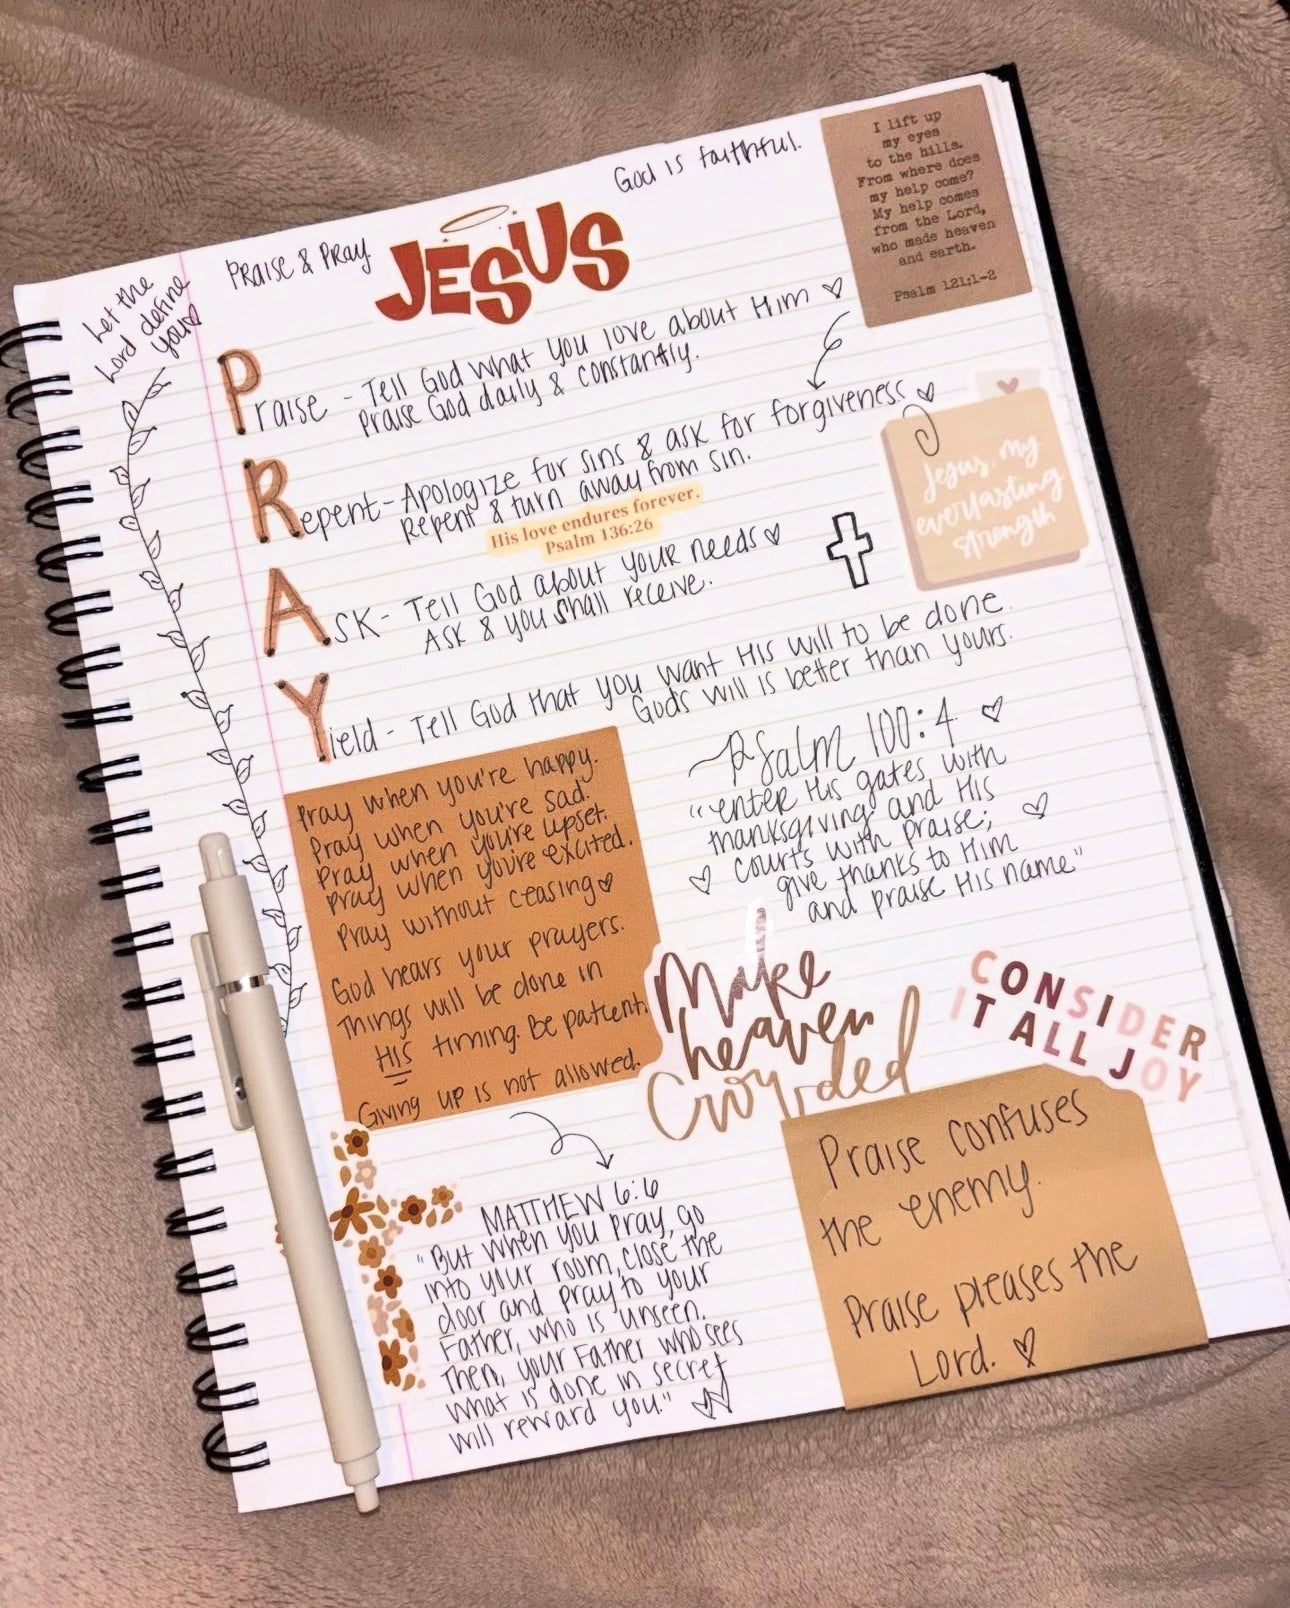 God is faithful.
I lift up
my eyes
to the hills.
From where does
my help come?
My help comes
from the Lord,
who made heaven
and earth.
Psalm 121:1-2
Let the
Lord define
you
PRAISE & PRAY
JESUS
Praise - Tell God what you love about Him
Praise God daily & constantly.
Repent - Apologize for sins & ask for forgiveness
Repent & turn away from sin.
His love endures forever.
Psalm 136:26
Jesus, my
everlasting
strength
ASK - Tell God about your needs
Ask & you shall receive.
Yield - Tell God that you want His will to be done.
Gods will is better than yours.
Pray when you're happy.
Pray when you're sad.
Pray when you're upset.
Pray when you're excited.
Pray without ceasing
God hears your prayers.
Things will be done in
HIS timing. Be patient.
Giving up is not allowed.
Psalm 100:4
"enter His gates with
thanksgiving and His
courts with praise;
give thanks to Him
and praise His name"
Make
heaven
Crowded
CONSIDER
IT ALL JOY
MATTHEW 6:6
"But when you pray, go
into your room, close the
door and pray to your
Father, who is unseen.
Then, your Father who sees
what is done in secret
will reward you."
Praise confuses
the enemy.
Praise pleases the
Lord.